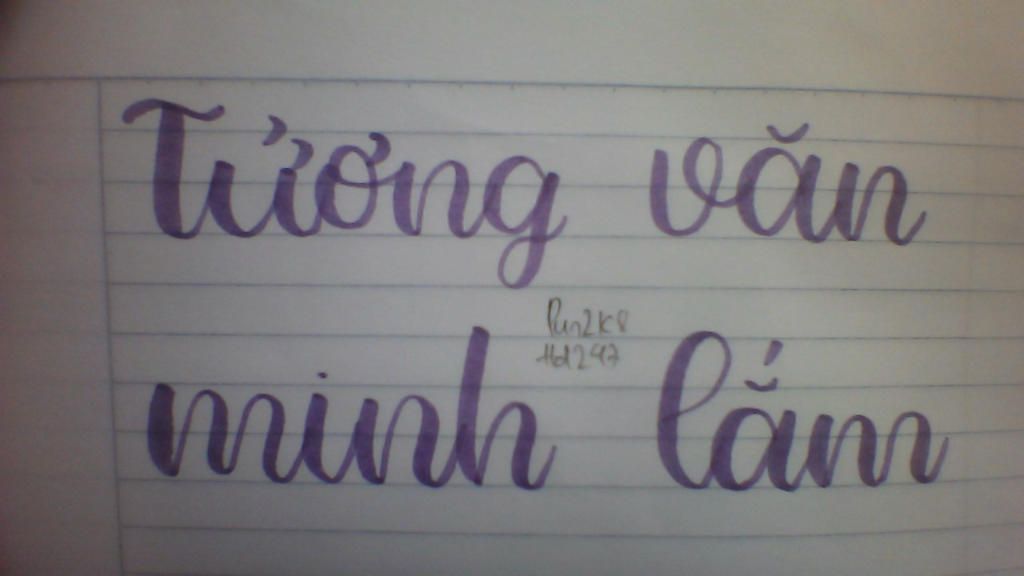 Tưởng văn
Pun2k8
Hd1247
minh lắm